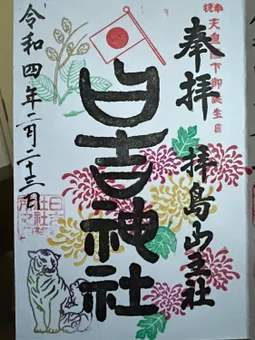 奉祝
天皇陛下御誕生日
奉拝 拝島山王社
日吉神社
令和四年二月二十三日